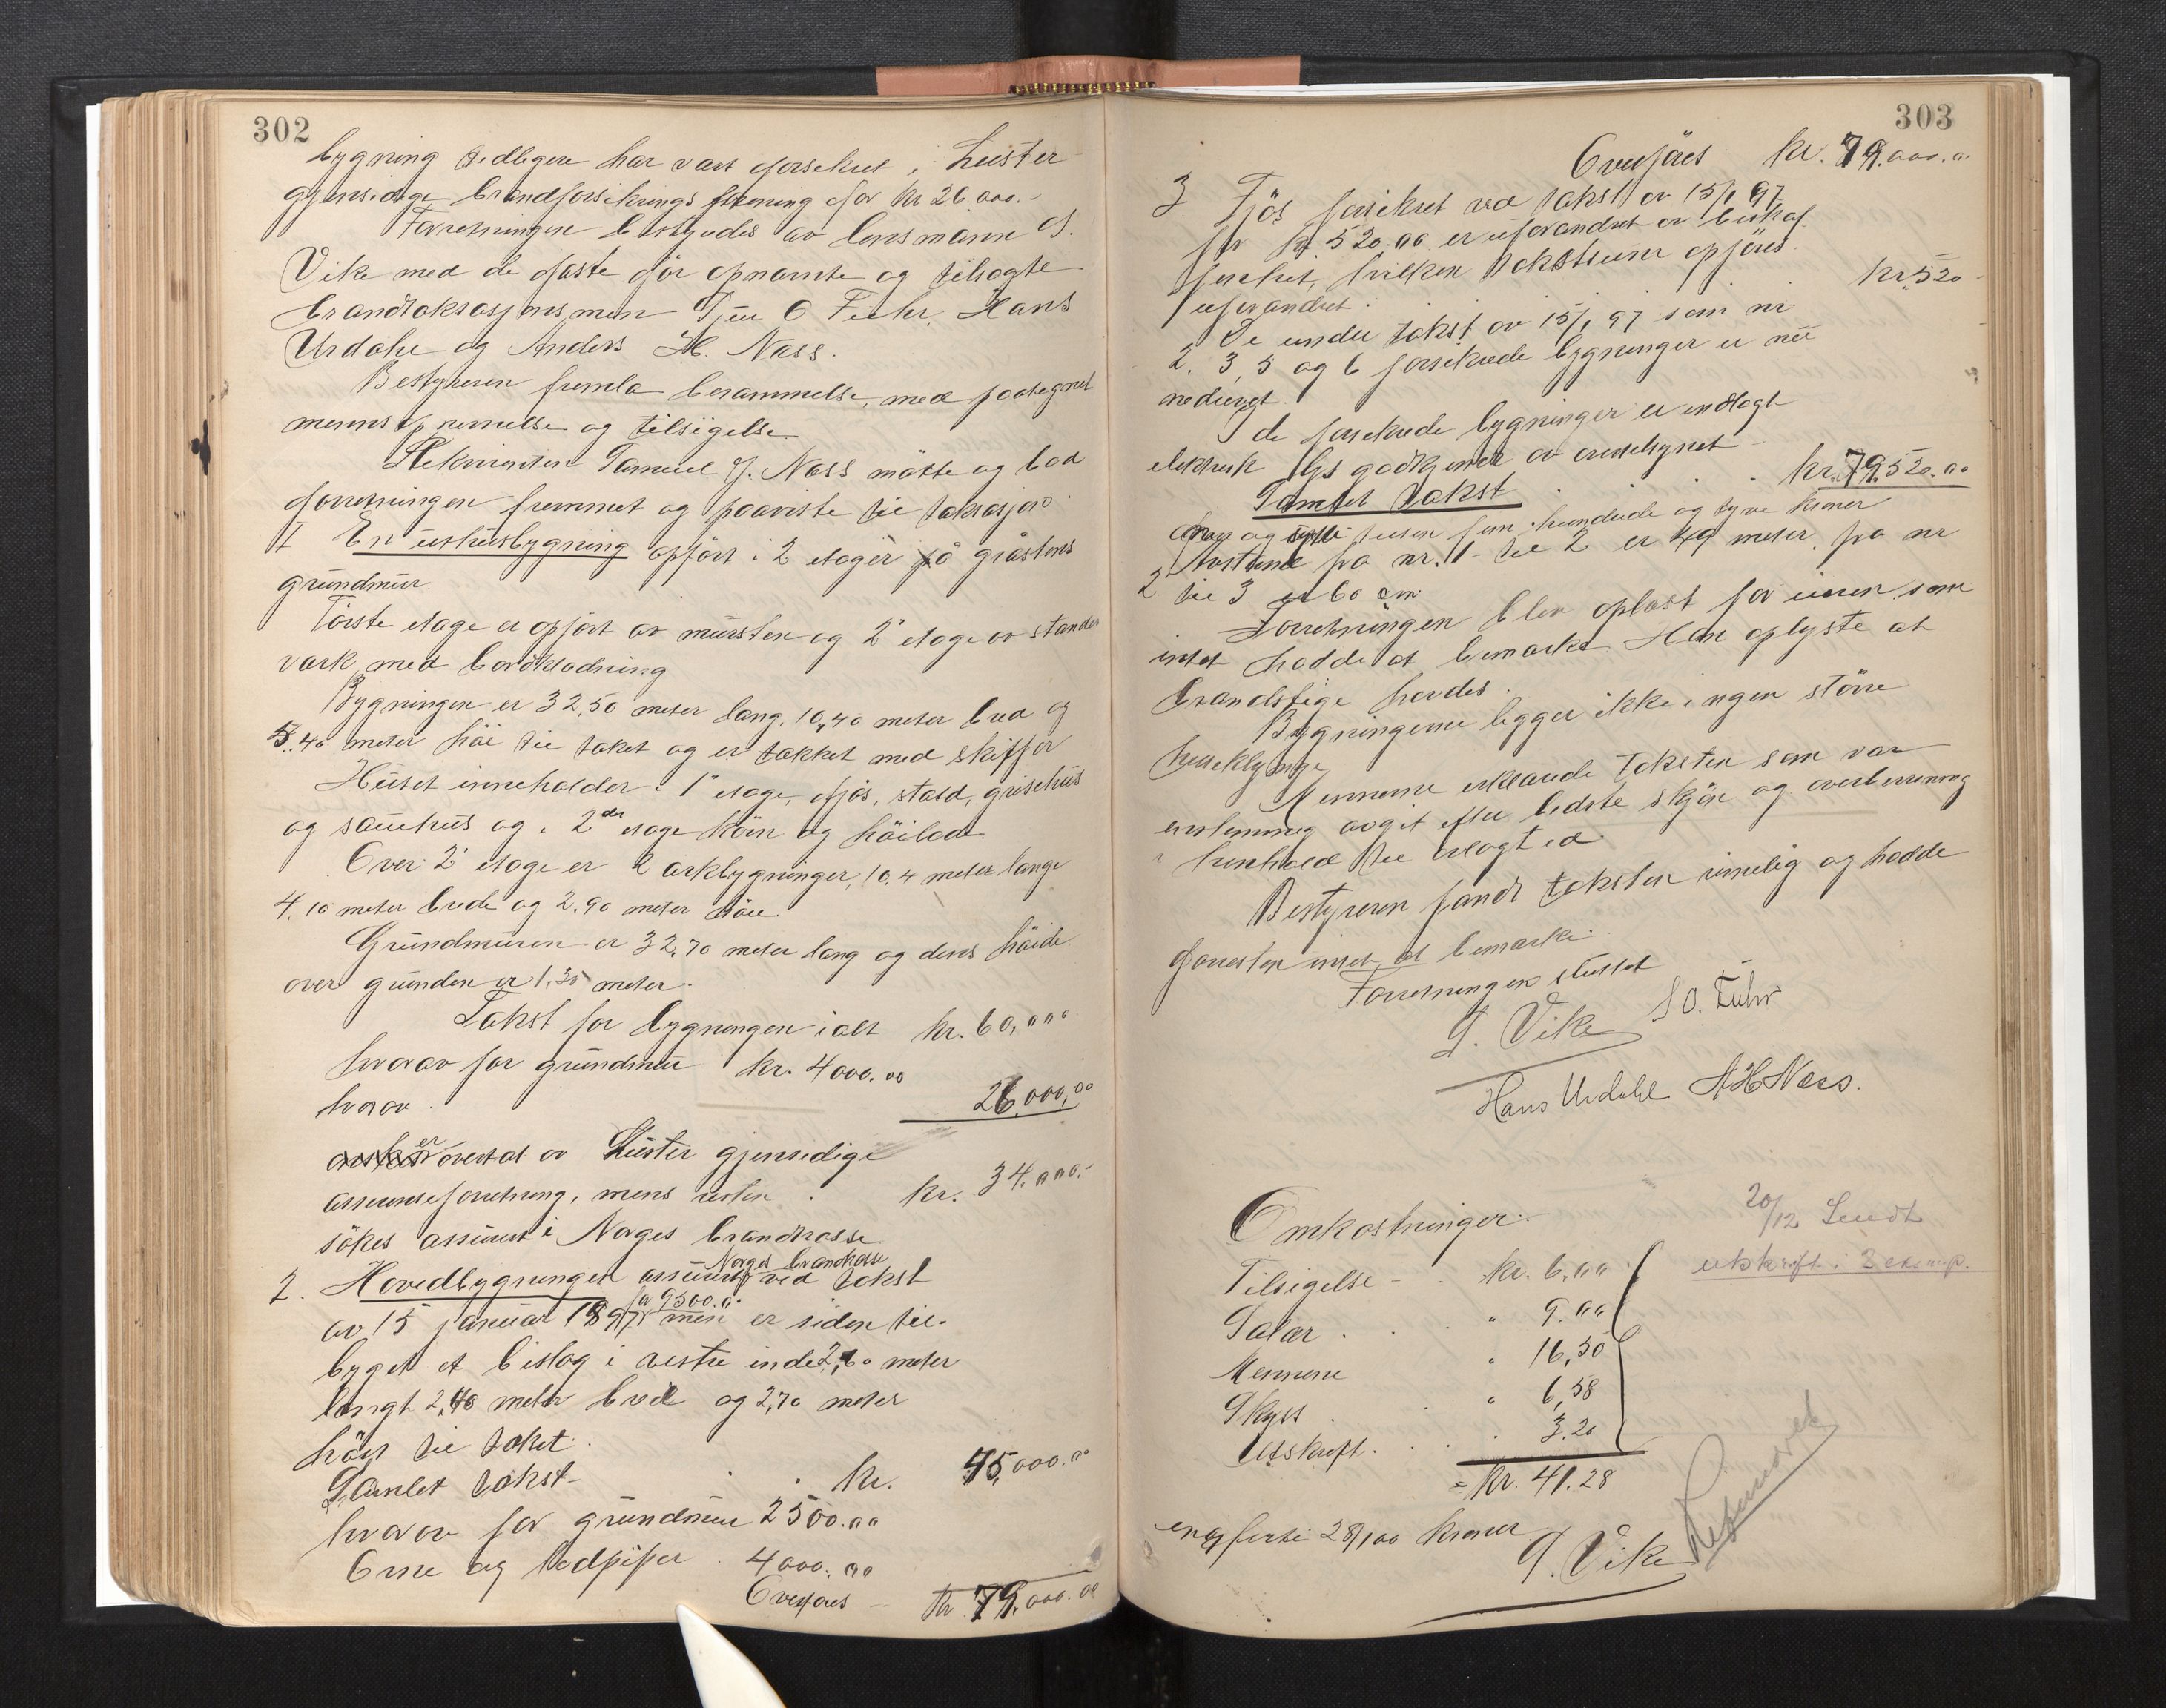 302
bygning tidligere har vært forsekret i Luster
gjensidige brandforsikrings forening for kr 26.000.-
Forretningen bestyredes av lensmann S.
Vike med de faste før opnævnte og tilsagte
brandtaksasjonsmen O Fuhr, Hans
Urdahl og Anders H. Næss.
Bestyreren fremla berammelse, med paategnet
menns opnevnelse og tilsigelse
Rekvirenten Samuel J. Næss møtte og bad
forretningen fremmet og paaviste til taksasjon
1 En uthusbygning opført i 2 etager på gråstens
grundmur.
Første etage er opført av mursten og 2' etage av stander
værk med bordklædning
Bygningen er 32,50 meter lang, 10,40 meter bred og
5.40 meter høi til taket og er tækket med skiffer
Huset inneholder i 1' etage, fjøs, stald, grisehus
og sauehus og i 2den etage korn og høilade
Over 2' etage er 2 arkbygninger, 10.4 meter lange
4.10 meter brede og 2.90 meter høie.
Grundmuren er 32,70 meter lang og dens høide
over grunden er 1,35 meter.
Takst for bygningen ialt kr. 60,000
hvorav for grundmur kr. 4000.00
hvorav . 26,000,00
er overtat av Luster gjensidige
assuranseforretning, mens resten . kr. 34.000.-
søkes assurert i Norges brandkasse
Norges brandkasse
2. Hovedbygningen assurert ved takst
for 9500.00
av 15 januar 1897 men er siden til-
bygget et bislag i vestre ende 2,60 meter
langt 2,40 meter bred og 2,70 meter
høit til taket.
Samlet takst . . kr. 45,000.00
hvorav for grundmur 2500.00
Ovne og ledpiper . 4000.00
Overføres - Kr 79.000.00
303
Overføres kr. 79.000.00
3. Fjøs forsikret ved takst av 15/1 97
for kr 520.00 er uforandret av beskaf
fenhet, hvilken takstsum opføres
uforandret. kr. 520
De under takst av 15/1 97 som nr
2, 3, 5 og 6 forsekrede bygninger er nu
nedrevet.
I de forsekrede bygninger er indlagt
elektrisk lys godkjendt av
Samlet takst . . . kr. 79.520.00
og sytti tusen fem hundrede og tyve kroner
Avstand fra nr. 1 til 2 er 49 meter, fra nr
2 til 3 er 60 cm
Forretningen blev oplæst for eieren som
intet hadde at bemærke. Han oplyste at
brandstige havdes.
Bygningerne ligger ikke i nogen større
huseklynge
Mennerne erklærede taksten som var
enstemmig avgit efter bedste skjøn og overbevisning
i henhold til avlagt ed
Bestyreren fandt taksten rimelig og hadde
forresten intet at bemærke.
Forretningen sluttet
S. Vike S O. Fuhr
Hans Urdahl AHNæss.
Omkostninger.
20/12 Sendt
utskrift i 2 eksemp.
Tilsigelse - . kr. 6,00
Salær . . . " 9.00
Mennene " 16,50
Skyss . . " 6,58
Utskrift . . . . 3.20
= Kr. 41.28
en og førti 28/100 kroner
S. Vike